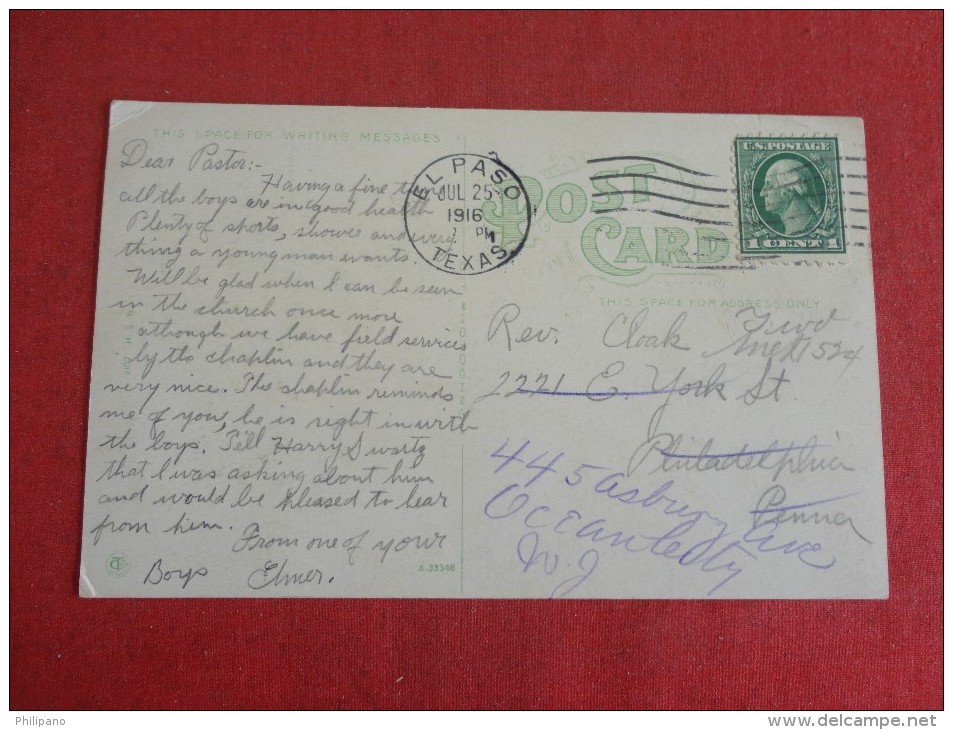 THIS SPACE FOR WRITING MESSAGES
Dear Pastor:-
Having a fine time
all the boys are in good health
Plenty of sports, shower and every
thing a young man wants.
Will be glad when I can be seen
in the church once more
although we have field services
by the chaplin and they are
very nice. The chaplin reminds
me of you, he is right in with
the boys. Tell Harry Swartz
that I was asking about him
and would be pleased to hear
from him.
From one of your
Boys Elmer.
A-33348
EL PASO
JUL 25
1916
PM
TEXAS
POST
CARD
U.S. POSTAGE
1 CENT 1
THIS SPACE FOR ADDRESS ONLY
Rev. Cloak
2221 E. York St.
Philadelphia
Penna
445 Asbury Ave
Ocean City
N.J
Philipano
www.delcampe.net